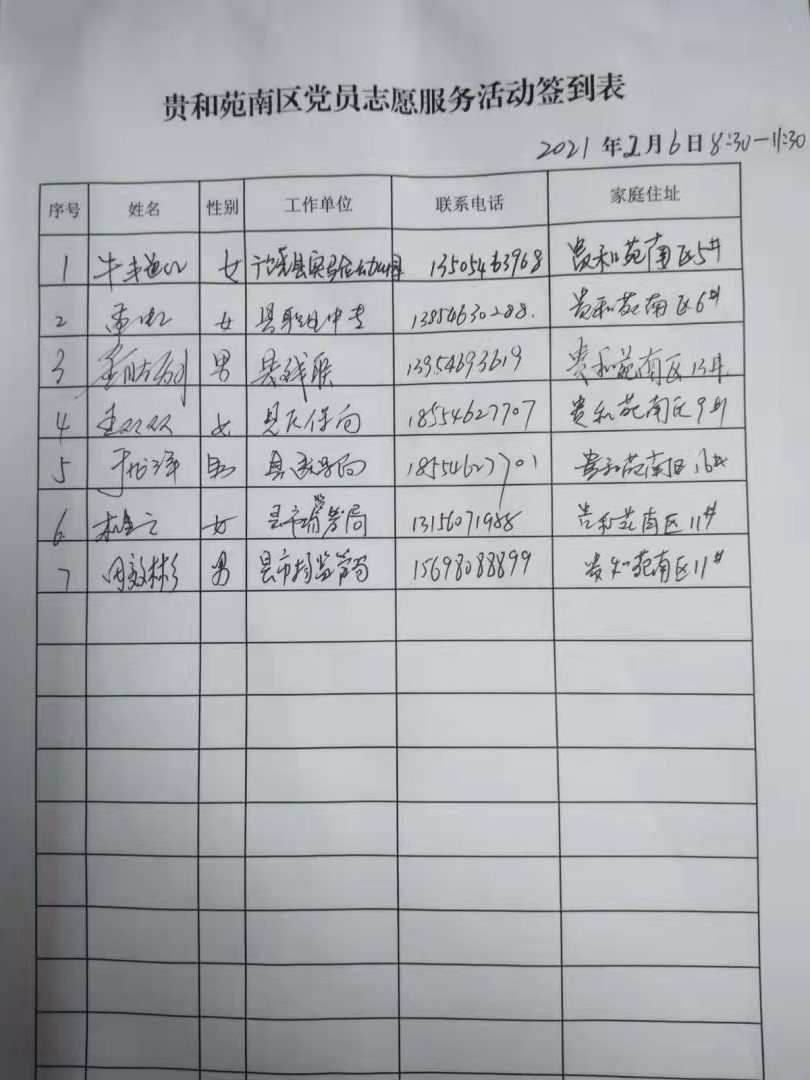 贵和苑南区党员志愿服务活动签到表
2021年2月6日8:30-11:30
序号 姓名 性别 工作单位 联系电话 家庭住址
1 女 县实验幼儿园 13505463968 贵和苑南区5#
2 女 县职业中专 13854630288. 贵和苑南区6#
3 男 县残联 13954693619 贵和苑南区13#
4 王双双 女 县医保局 18554627707 贵和苑南区9#
5 男 县 局 18554627701 贵和苑南区16#
6 女 县市场监管局 13156071988 贵和苑南区11#
7 周 彬 男 县市场监管局 15698088899 贵和苑南区11#